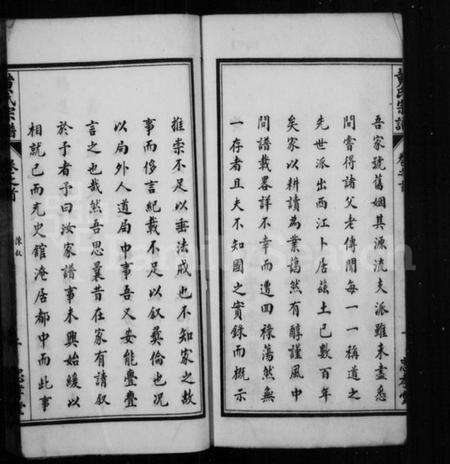 吾家號舊姻其源流支派雖未盡悉
間嘗得諸父老傳聞每一一稱道之
先世派出西江卜居茲土已數百年
矣家以耕讀為業藹然有醇謹風中
間譜載畧詳不幸而遭回祿蕩然無
一存者且夫不知國之實錄而概示
推崇不足以垂法戒也不知家之故
事而侈言紀載不足以叙彝倫也况
以局外人道局中事吾又安能亹亹
言之也哉然吾思曩昔在家有請叙
於予者予曰汝家譜事未興始緩以
相就已而充史館淹居都中而此事
黃氏宗譜
卷之首
陳叙